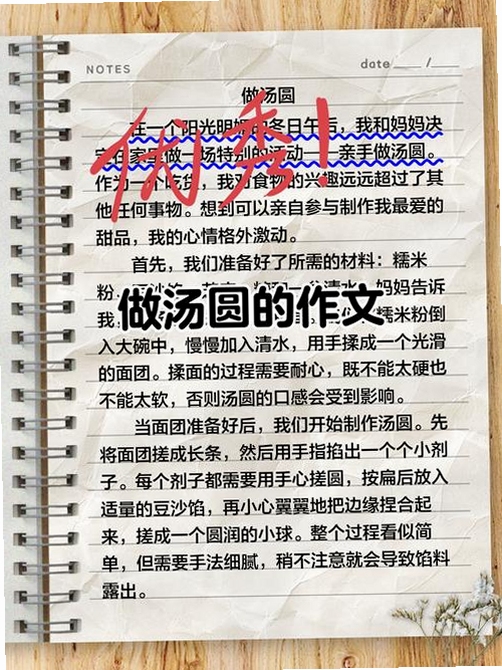 NOTES
date ____ /____
做汤圆
在一个阳光明媚的冬日午后，我和妈妈决
定在家里做一场特别的活动——亲手做汤圆。
作为一个吃货，我对食物的兴趣远远超过了其
他任何事物。想到可以亲自参与制作我最爱的
甜品，我的心情格外激动。
优秀！
首先，我们准备好了所需的材料：糯米
粉、
清水。妈妈告诉
我，
糯米粉倒
做汤圆的作文
入大碗中，慢慢加入清水，用手揉成一个光滑
的面团。揉面的过程需要耐心，既不能太硬也
不能太软，否则汤圆的口感会受到影响。
当面团准备好后，我们开始制作汤圆。先
将面团搓成长条，然后用手指掐出一个个小剂
子。每个剂子都需要用手心搓圆，按扁后放入
适量的豆沙馅，再小心翼翼地把边缘捏合起
来，搓成一个圆润的小球。整个过程看似简
单，但需要手法细腻，稍不注意就会导致馅料
露出。